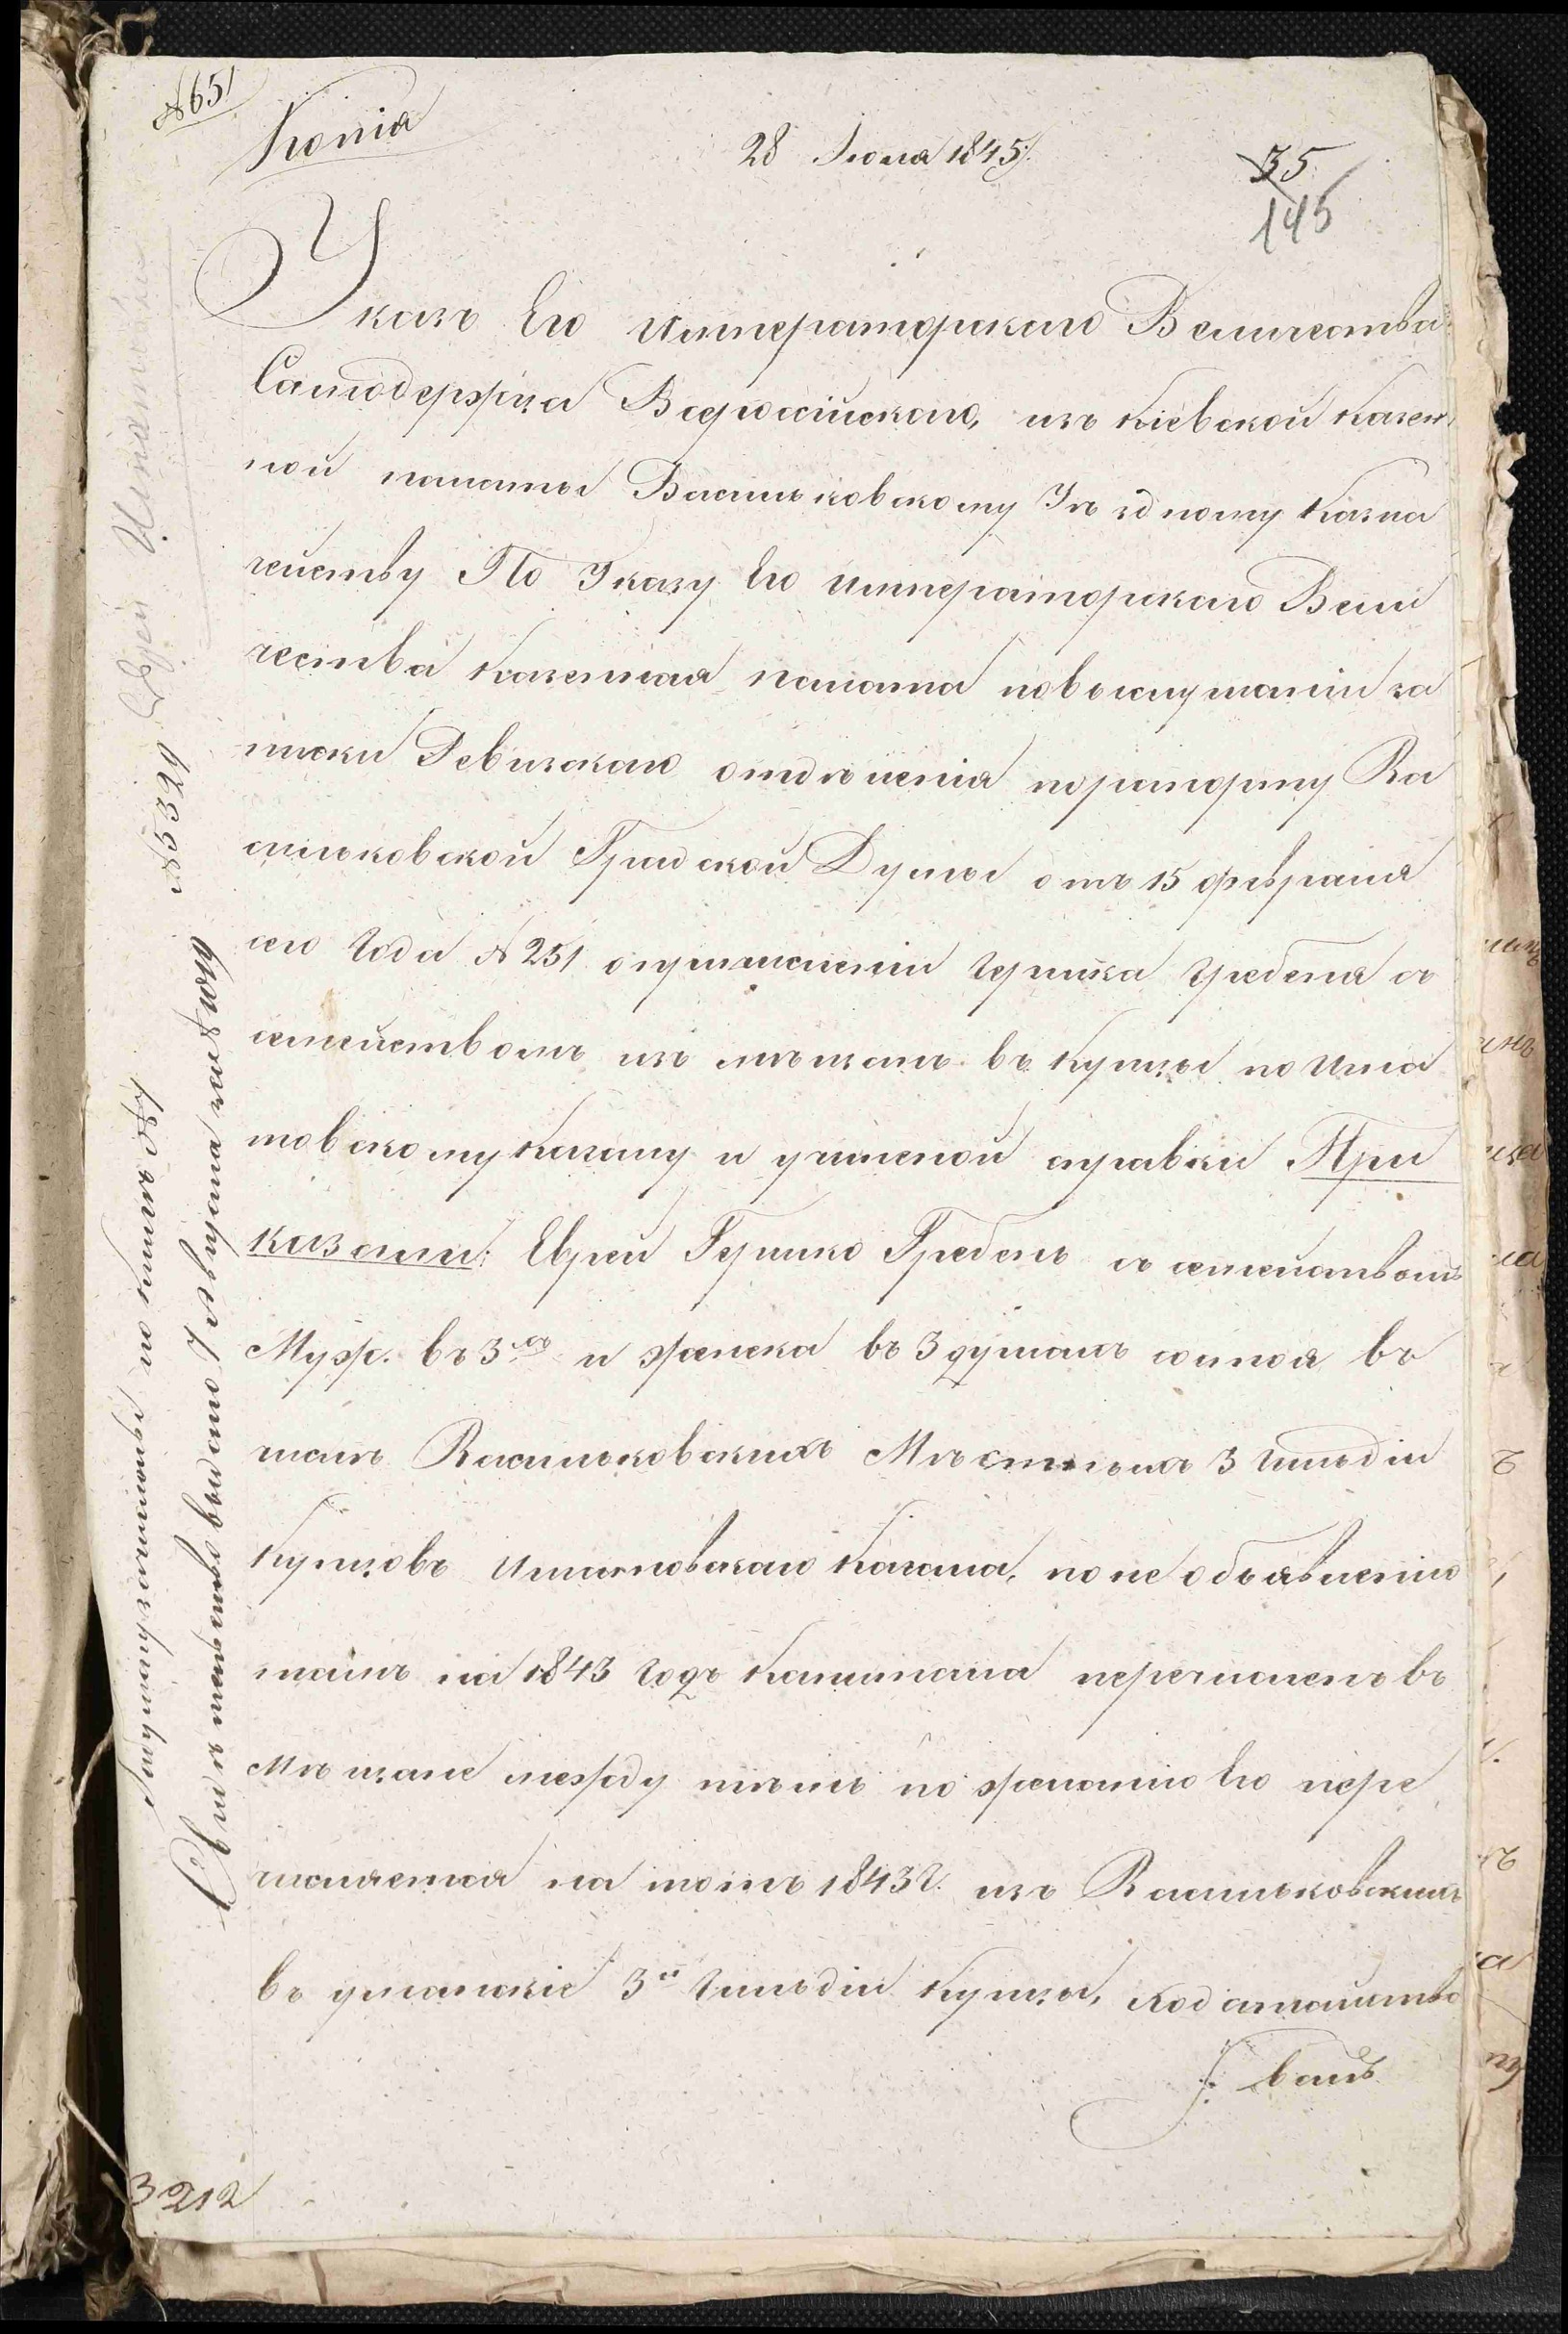 №651
Копія
28 Іюля 1845г.
35
145
Указъ Его Императорскаго Величества
Самодержца Всероссійскаго, изъ Кіевской Казен
ной палаты Васильковскому Уѣздному Казна
чейству По Указу Его Императорскаго Вели
чества Казенная палата повыслушаніи за
писки Ревизскаго отдѣленія порапорту Ва
сильковской Градской Думы отъ 15 февраля
сего Года №251 о Гершка Гребеня съ
семействомъ изъ мѣщанъ въ Купцы по Игна
товскому Кагалу и учиненой справки При
казали: Еврей Гершко Гребень съ семействомъ
Муж. въ 3хъ и женска въ 3 душахъ состоя въ
числѣ Васильковскихъ Мѣстныхъ 3 Гильдіи
Купцовъ Игнатовскаго Кагала, по не объявленію
имъ на 1843 годъ Капитала перечисленъ въ
Мѣщане между тѣмъ по желанію Его пере
числяется на тотъ 1843г. изъ Васильковскихъ
въ уманскіе 3й Гильдіи Купцы, Ходатайство
№5329
Свидѣтельство выдано
по книгѣ
3212